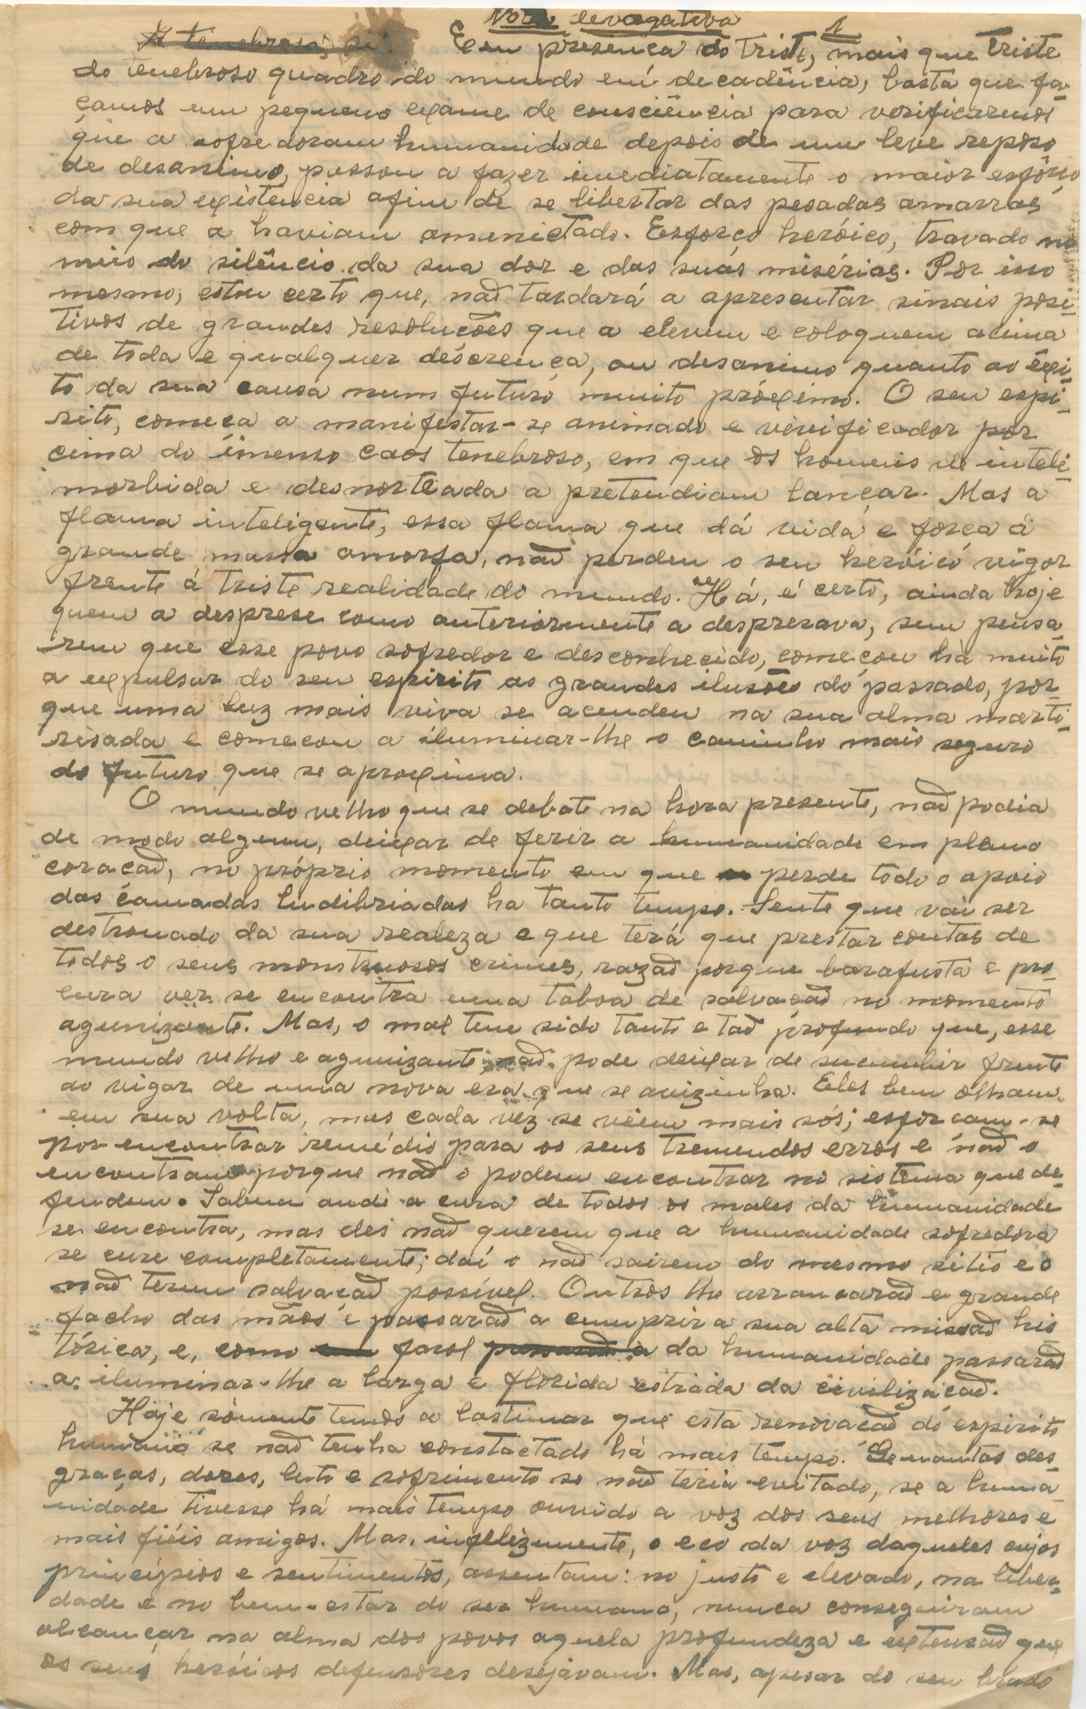 Nota evocativa
1
A tenebrosa, si Em presença do triste, mais que triste
do tenebroso quadro do mundo em decadência, basta que fa-
çamos um pequeno exame de consciência para verificarmos
que a sofredoram humanidade depois de um leve reposo
de desanimo, passou a fazer imediatamente o maior esfôrço
da sua existencia afim de se libertar das pesadas amarras
com que a haviam amanietado. Esforço heróico, travado no
meio do silêncio da sua dor e das suas misérias. Por isso
mesmo, estou certo que, não tardará a apresentar sinais posi-
tivos de grandes resoluções que a elevem e coloquem acima
de toda e qualquer descrença, ou desanimo quanto ao êxi-
to da sua causa num futuro muito próximo. O seu espi-
rito, começa a manifestar-se animado e vivificador por
cima do imenso caos tenebroso, em que os homens de inteli-
morbida e desnorteada a pretendiam lançar. Mas a
flama inteligente, essa flama que dá vida e força á
grande massa amorfa, não perdeu o seu heróico vigor
frente á triste realidade do mundo. Há, é certo, ainda hoje
quem a desprese como anteriormente a despresava, sem pensa-
rem que esse povo sofredor e desconhecido, começou há muito
a expulsar do seu espirito as grandes ilusões do passado, por-
que uma luz mais viva se acendeu na sua alma marti-
risada e começou a iluminar-lhe o caminho mais seguro
do futuro que se aproxima.
O mundo velho que se debate na hora presente, não podia
de modo algum, deixar de ferir a humanidade em pleno
coração, no próprio momento em que perde todo o apoio
das camadas ludibriadas ha tanto tempo. Sente que vai ser
destronado da sua realeza e que terá que prestar contas de
todos o seus monstruosos crimes, razão porque barafusta e pro-
cura ver se encontra uma taboa de salvação no momento
agunizante. Mas, o mal tem sido tanto e tão profundo que, esse
mundo velho e agunizante não pode deixar de sucumbir frente
ao vigor de uma nova era que se avizinha. Eles bem olham
em sua volta, mas cada vêz se vêem mais sós; esforçam-se
por encontrar remédio para os seus tremendos erros e não o
encontram porque não o podem encontrar no sistema que de-
fendem. Sabem onde a cura de todos os males da humanidade
se encontra, mas eles não querem que a humanidade sofredora
se cure completamente; daí o não sairem do mesmo sitio e o
não terem salvação possível. Outros lhe arrancarão e grande
facho das mãos e passarão a cumprir a sua alta missão his
tórica, e, como farol passarão a da humanidade passarão
a iluminar-lhe a larga e florida estrada da civilização.
Hoje sómente temos a lastimar que esta renovação do espirito
humano se não tenha constactado há mais tempo. Quantas des-
graças, dores, luto e sofrimento se não teria evitado, se a huma-
nidade tivesse há mais tempo ouvido a voz dos seus melhores e
mais fiéis amigos. Mas, infelizmente, o eco da voz daqueles cujos
princípios e sentimentos, assentam: no justo e elevado, na liber-
dade e no bem-estar do ser humano, nunca conseguiram
alcançar na alma dos povos aquela profundeza e extensão que
os seus heróicos defensores desejavam. Mas, apesar do seu brado